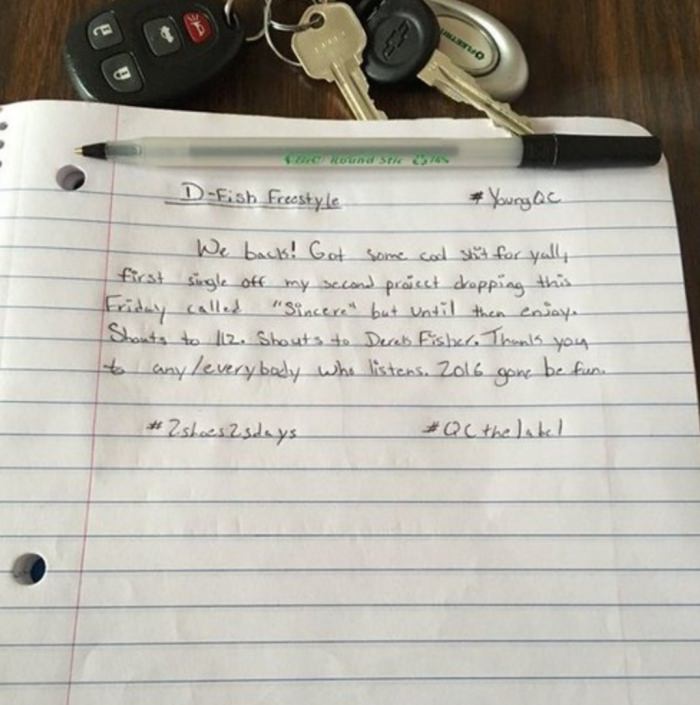 BIC Round Stic
D-Fish Freestyle #YoungQC
We back! Got some cool shit for yall,
first single off my second project dropping this
Friday called "Sincere" but until then enjoy.
Shouts to 112. Shouts to Derek Fisher. Thank you
to any/everybody who listens. 2016 gone be fun.
#2shoes2sdays #QCthelabel